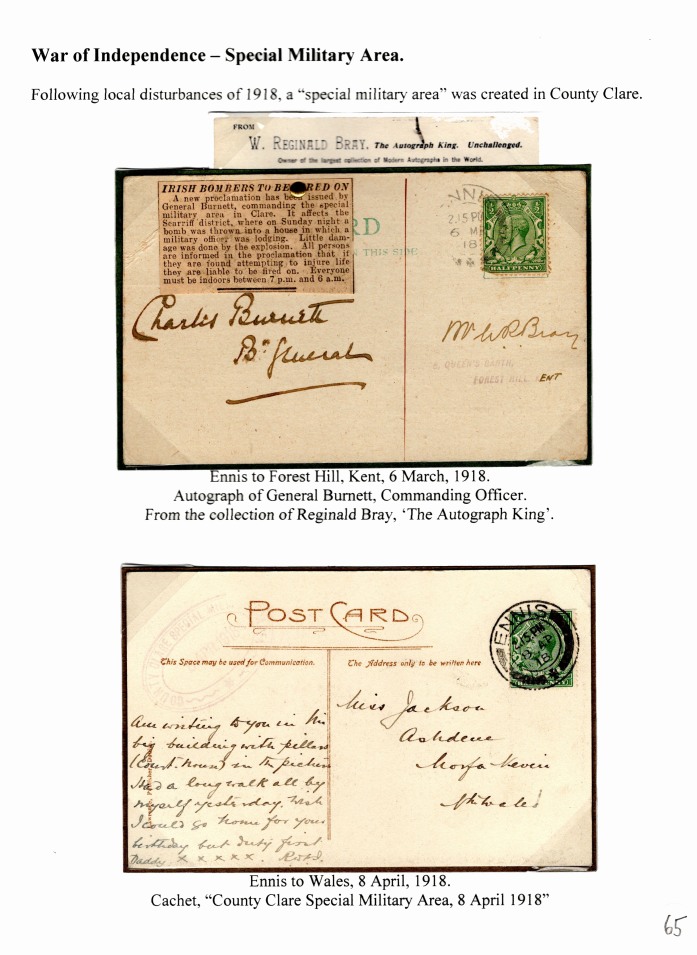 War of Independence – Special Military Area.
Following local disturbances of 1918, a “special military area” was created in County Clare.
FROM
W. REGINALD BRAY. The Autograph King. Unchallenged.
Owner of the largest collection of Modern Autographs in the World.
IRISH BOMBERS TO BE RED ON
A new proclamation has been issued by
General Burnett, commanding the special
military area in Clare. It affects the
Scarriff district, where on Sunday night a
bomb was thrown into a house in which a
military officer was lodging. Little dam-
age was done by the explosion. All persons
are informed in the proclamation that if
they are found attempting to injure life
they are liable to be fired on. Everyone
must be indoors between 7 p.m. and 6 a.m.
RD
THIS SIDE
ENNIS
2.15 PM
6 M
18
HALFPENNY
Charles Burnett
Br General
Mr W R Bray
QUEEN'S GARTH,
FOREST HILL
ENT
Ennis to Forest Hill, Kent, 6 March, 1918.
Autograph of General Burnett, Commanding Officer.
From the collection of Reginald Bray, ‘The Autograph King’.
POST CARD
ENNIS
2.15 PM
8 AP
18
This Space may be used for Communication.
The Address only to be written here
Am writing to you in this
big building with pillars
(Court House) in the picture
Had a long walk all by
myself yesterday. Wish
I could go home for your
birthday but duty first
Daddy x x x x x.
Miss Jackson
Ashdene
Morfa Nevin
N. Wales
Ennis to Wales, 8 April, 1918.
Cachet, “County Clare Special Military Area, 8 April 1918”
65